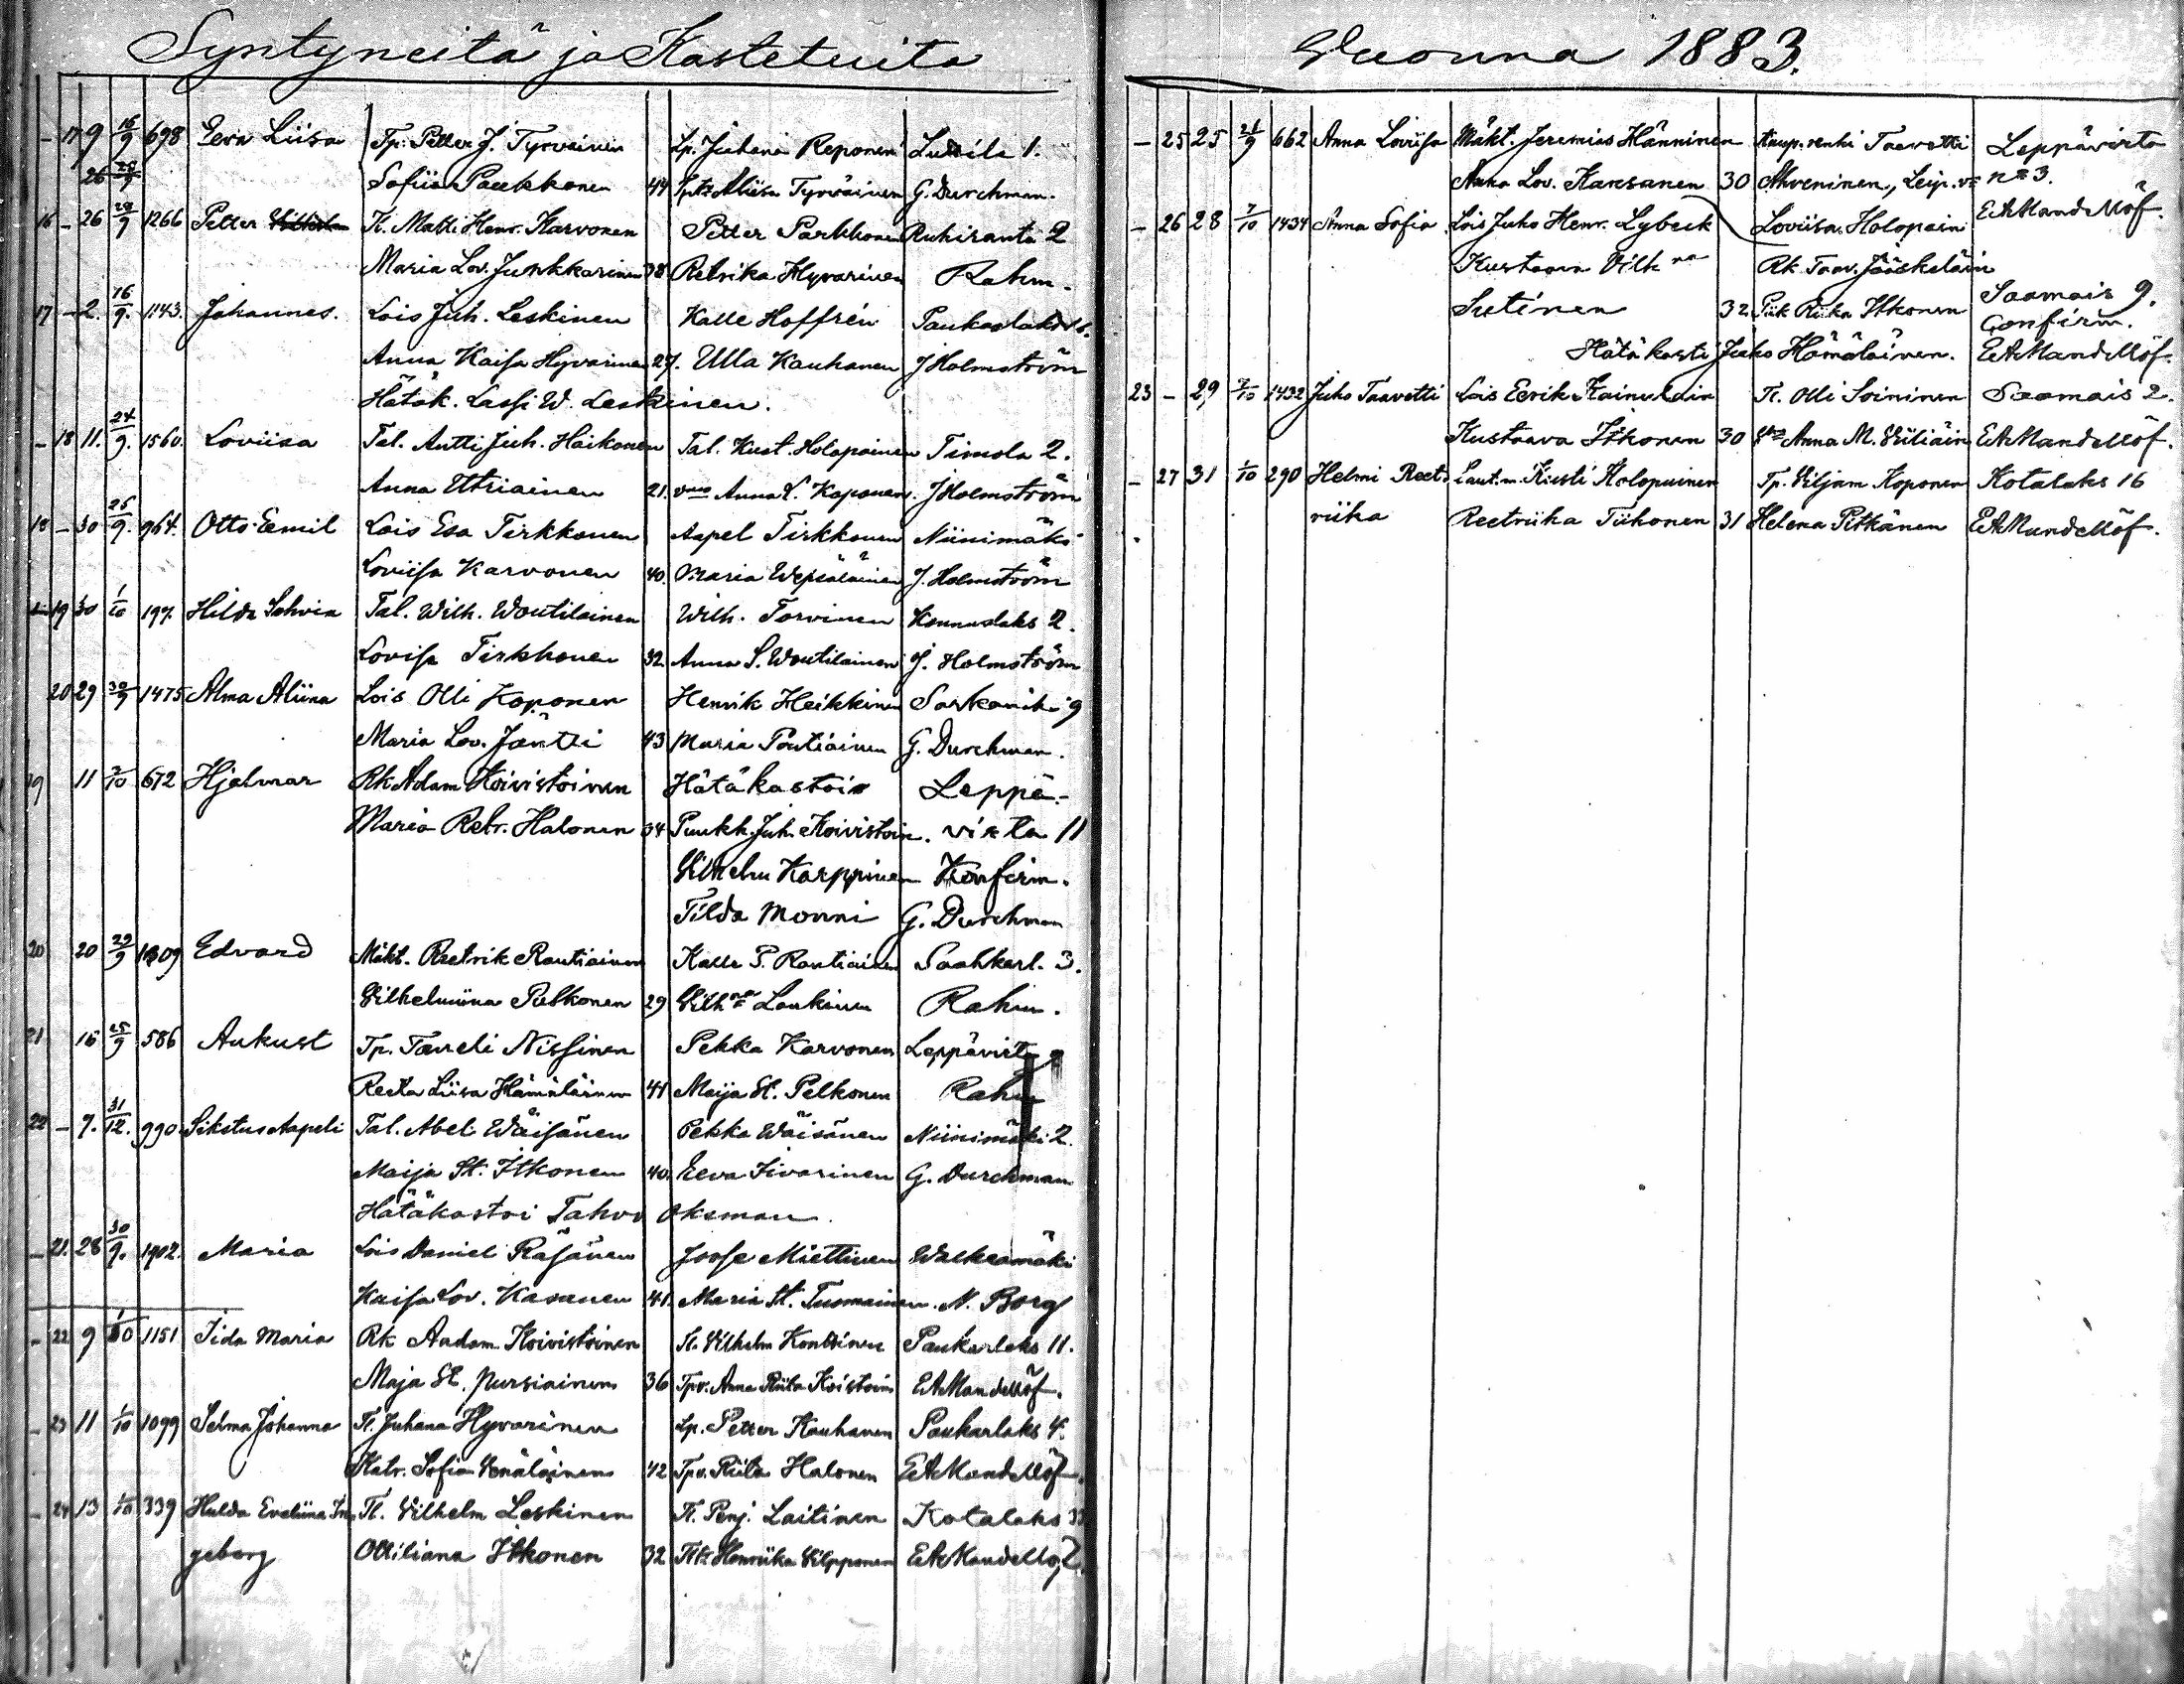 Syntyneitä ja Kastetuita
- 17 9 16/9 698 Eeva Liisa Tp. Petter J. Tyrväinen Lp. Juhana Reponen Luttila 1.
26 Sofiia Paukkonen 44 Aliisa Tyrväinen G. Durchman.
16 - 26 28/9 1266 Petter Tl. Matti Henr. Karvonen Petter Parkkonen Ruhiranta 2
Maria Lov. Junkkarinen 38 Retrika Hyvärinen Rahm.
17 - 2. 16/9. 1143. Johannes. Lois Juh. Leskinen Kalle Hoffrén Paukarlaks 16.
Anna Kaisa Hyvärinen 27. Ulla Kauhanen J Holmström
Hätäk. Lassi W. Leskinen.
- 18 11. 24/9. 1560. Loviisa Tal. Antti Juh. Haikonen Tal. Kust. Holopainen Timola 2.
Anna Utriainen 21. Anna L. Koponen. J Holmström
18 - 30 25/9. 964. Otto Eemil Lois Esa Tirkkonen Aapel Tirkkonen Niinimäki
Loviisa Karvonen 40. Maria Wepsäläinen J. Holmström
19 30 1/10 197. Hilda Sohvia Tal. Wilh. Woutilainen Wilh. Torvinen Konnuslaks 2.
Lovisa Tirkkonen 32. Anna S. Woutilainen J. Holmström
20 29 30/9 1475 Alma Aliina Lois Olli Koponen Henrik Heikkinen Sorkamäki 9
Maria Lov. Jäntti 43 Maria Poutiainen G. Durchman.
19 11 2/10 672 Hjalmar Rk Adam Koivistoinen Hätäkastoi Leppä-
Maria Retr. Halonen 34 Puukh. Juh. Koivistoin. virta 11
Vilhelm Karppinen Konfirm.
Tilda Monni G. Durchman
20 20 29/9 1309 Edvard Mäkt. Reetrik Rautiainen Kalle P. Rautiainen Saahkarl. 3.
Vilhelmiina Pulkonen 29 Vilhna Laukinen Rahm.
21 16 25/9 586 Aukust Tp. Taneli Nissinen Pekka Karvonen Leppävirta 9
Reeta Liisa Hämäläinen 41 Maija St. Pelkonen Rahm
22 - 7. 31/12. 990. Sikstus Aapeli Tal. Abel Wäisänen Pekka Wäisänen Niinimäki 2.
Maija St. Itkonen 40. Eeva Iivarinen G. Durchman
Hätäkastoi Tahvo Oksman.
- 21. 28 30/9. 1902. Maria Lois Daniel Räsänen Joose Miettinen Walkeamäki
Kaisa Lov. Kasanen 41. Maria St. Tuomainen. N. Borg
- 22 9 1/10 1151 Iida Maria Rk Aadam Koivistoinen Tl. Vilhelm Konttinen Paukarlaks 11.
Maja St. Pursiainen 36 Tpv. Anna Riita Koistoin EAMandellöf.
- 23 11 1/10 1099 Selma Johanna Tl. Juhana Hyvärinen Lp. Petter Kauhanen Paukarlaks 4.
Katr. Sofia Venäläinen 42 Tpv. Riita Halonen EAMandellöf.
- 24 13 1/10 339 Hulda Eveliina In Tl. Vilhelm Leskinen Tl. Penj. Laitinen Kotalaks
geborg Ottiliana Itkonen 32 Henriika Vilpponen EAMandellöf.
Vuonna 1883.
- 25 25 21/9 662 Anna Loviisa Mäkt. Jeremias Hänninen Kaup. renki Taavetti Leppävirta
Anna Lov. Kansanen 30 Ahveninen, Leip. no 3.
EAMandellöf.
- 26 28 7/10 1434 Anna Sofia Lois Juho Henr. Lybeck Loviisa Holopain
Kustaava Vilhna Rk Taav. Jääskeläin
Sutinen 32 Piik Riika Itkonen Saamais 9.
Confirm.
Hätäkasti Juho Hämäläinen. EAMandellöf.
23 - 29 7/10 1432 Juho Taavetti Lois Eerik Kainulain Tl. Olli Soininen Saamais 2.
Kustaava Itkonen 30 Anna M. Väliäin EAMandellöf.
- 27 31 1/10 290 Helmi Reet- Laut.m. Kiesti Holopainen Tp. Viljam Koponen Kotalaks 16
riika Reetriika Tiihonen 31 Helena Pitkänen EAMandellöf.